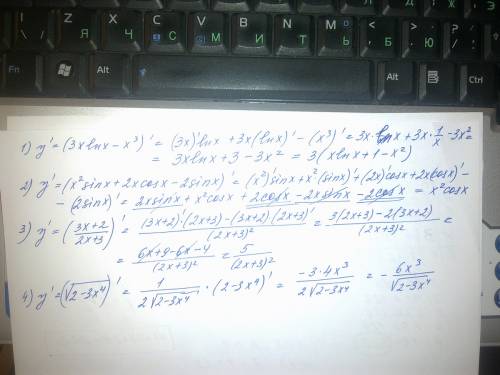 X C V B N M < >
Я Ч С М И Т Ь Б Ю
Fn Alt Alt
1) y' = (3x lnx - x³)' = (3x)' lnx + 3x (lnx)' - (x³)' = 3x · lnx + 3x · 1/x - 3x² =
= 3x lnx + 3 - 3x² = 3(x lnx + 1 - x²)
2) y' = (x² sinx + 2x cosx - 2 sinx)' = (x²)' sinx + x² (sinx)' + (2x)' cosx + 2x(cosx)' -
- (2 sinx)' = 2x sinx + x² cosx + 2 cosx - 2x sinx - 2 cosx = x² cosx
3) y' = ((3x+2)/(2x+3))' = ((3x+2)' (2x+3) - (3x+2)(2x+3)')/(2x+3)² = (3(2x+3) - 2(3x+2))/(2x+3)² =
= (6x + 9 - 6x - 4)/(2x+3)² = 5/(2x+3)²
4) y' = (√(2-3x⁴))' = 1/(2√(2-3x⁴)) · (2-3x⁴)' = (-3·4x³)/(2√(2-3x⁴)) = - 6x³/√(2-3x⁴)